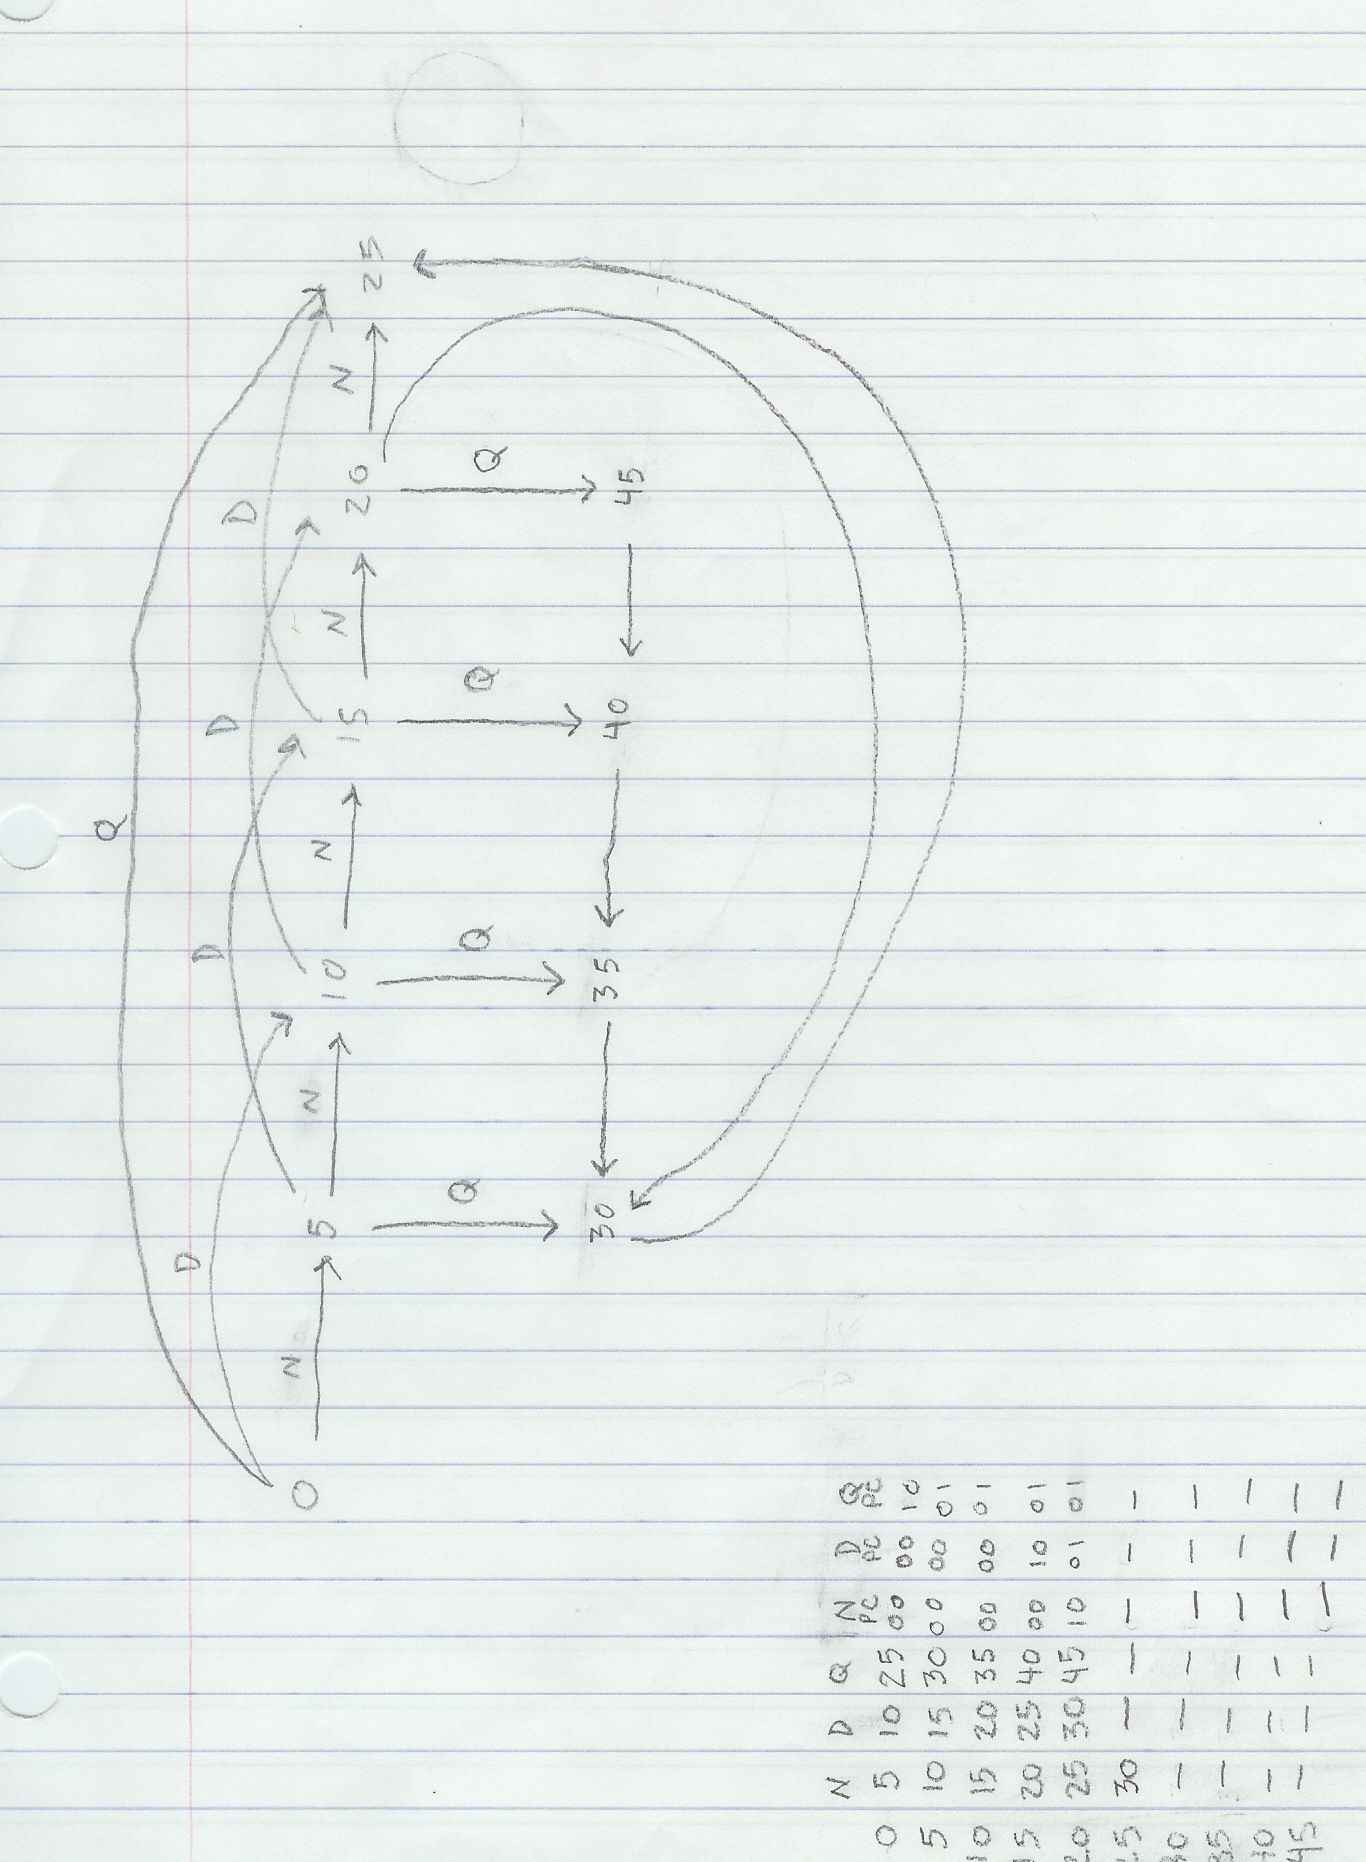 Q
D D D D
N N N N N
0 5 10 15 20 25
Q Q Q Q
30 35 40 45
N D Q N D Q
PC PC PC
0 5 10 25 00 00 10
5 10 15 30 00 00 01
10 15 20 35 00 00 01
15 20 25 40 00 10 01
20 25 30 45 10 01 01
25 30 — — — — —
30 — — — — — —
35 — — — — — —
40 — — — — — —
45 — — — — — —